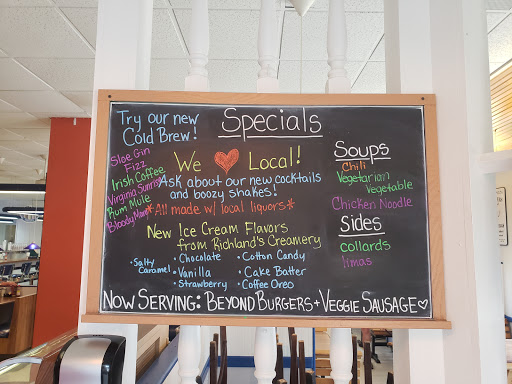 Try our new
Cold Brew!
Sloe Gin
Fizz
Irish Coffee
Virginia Sunrise
Rum Mule
Bloody Mary
Specials
We ♥ Local!
Ask about our new cocktails
and boozy shakes!
*All made w/ local liquors*
New Ice Cream Flavors
from Richland's Creamery
• Salty Caramel
• Chocolate
• Vanilla
• Strawberry
• Cotton Candy
• Cake Batter
• Coffee Oreo
Soups
Chili
Vegetarian
Vegetable
Chicken Noodle
Sides
collards
limas
Now Serving: Beyond Burgers + Veggie Sausage ♡